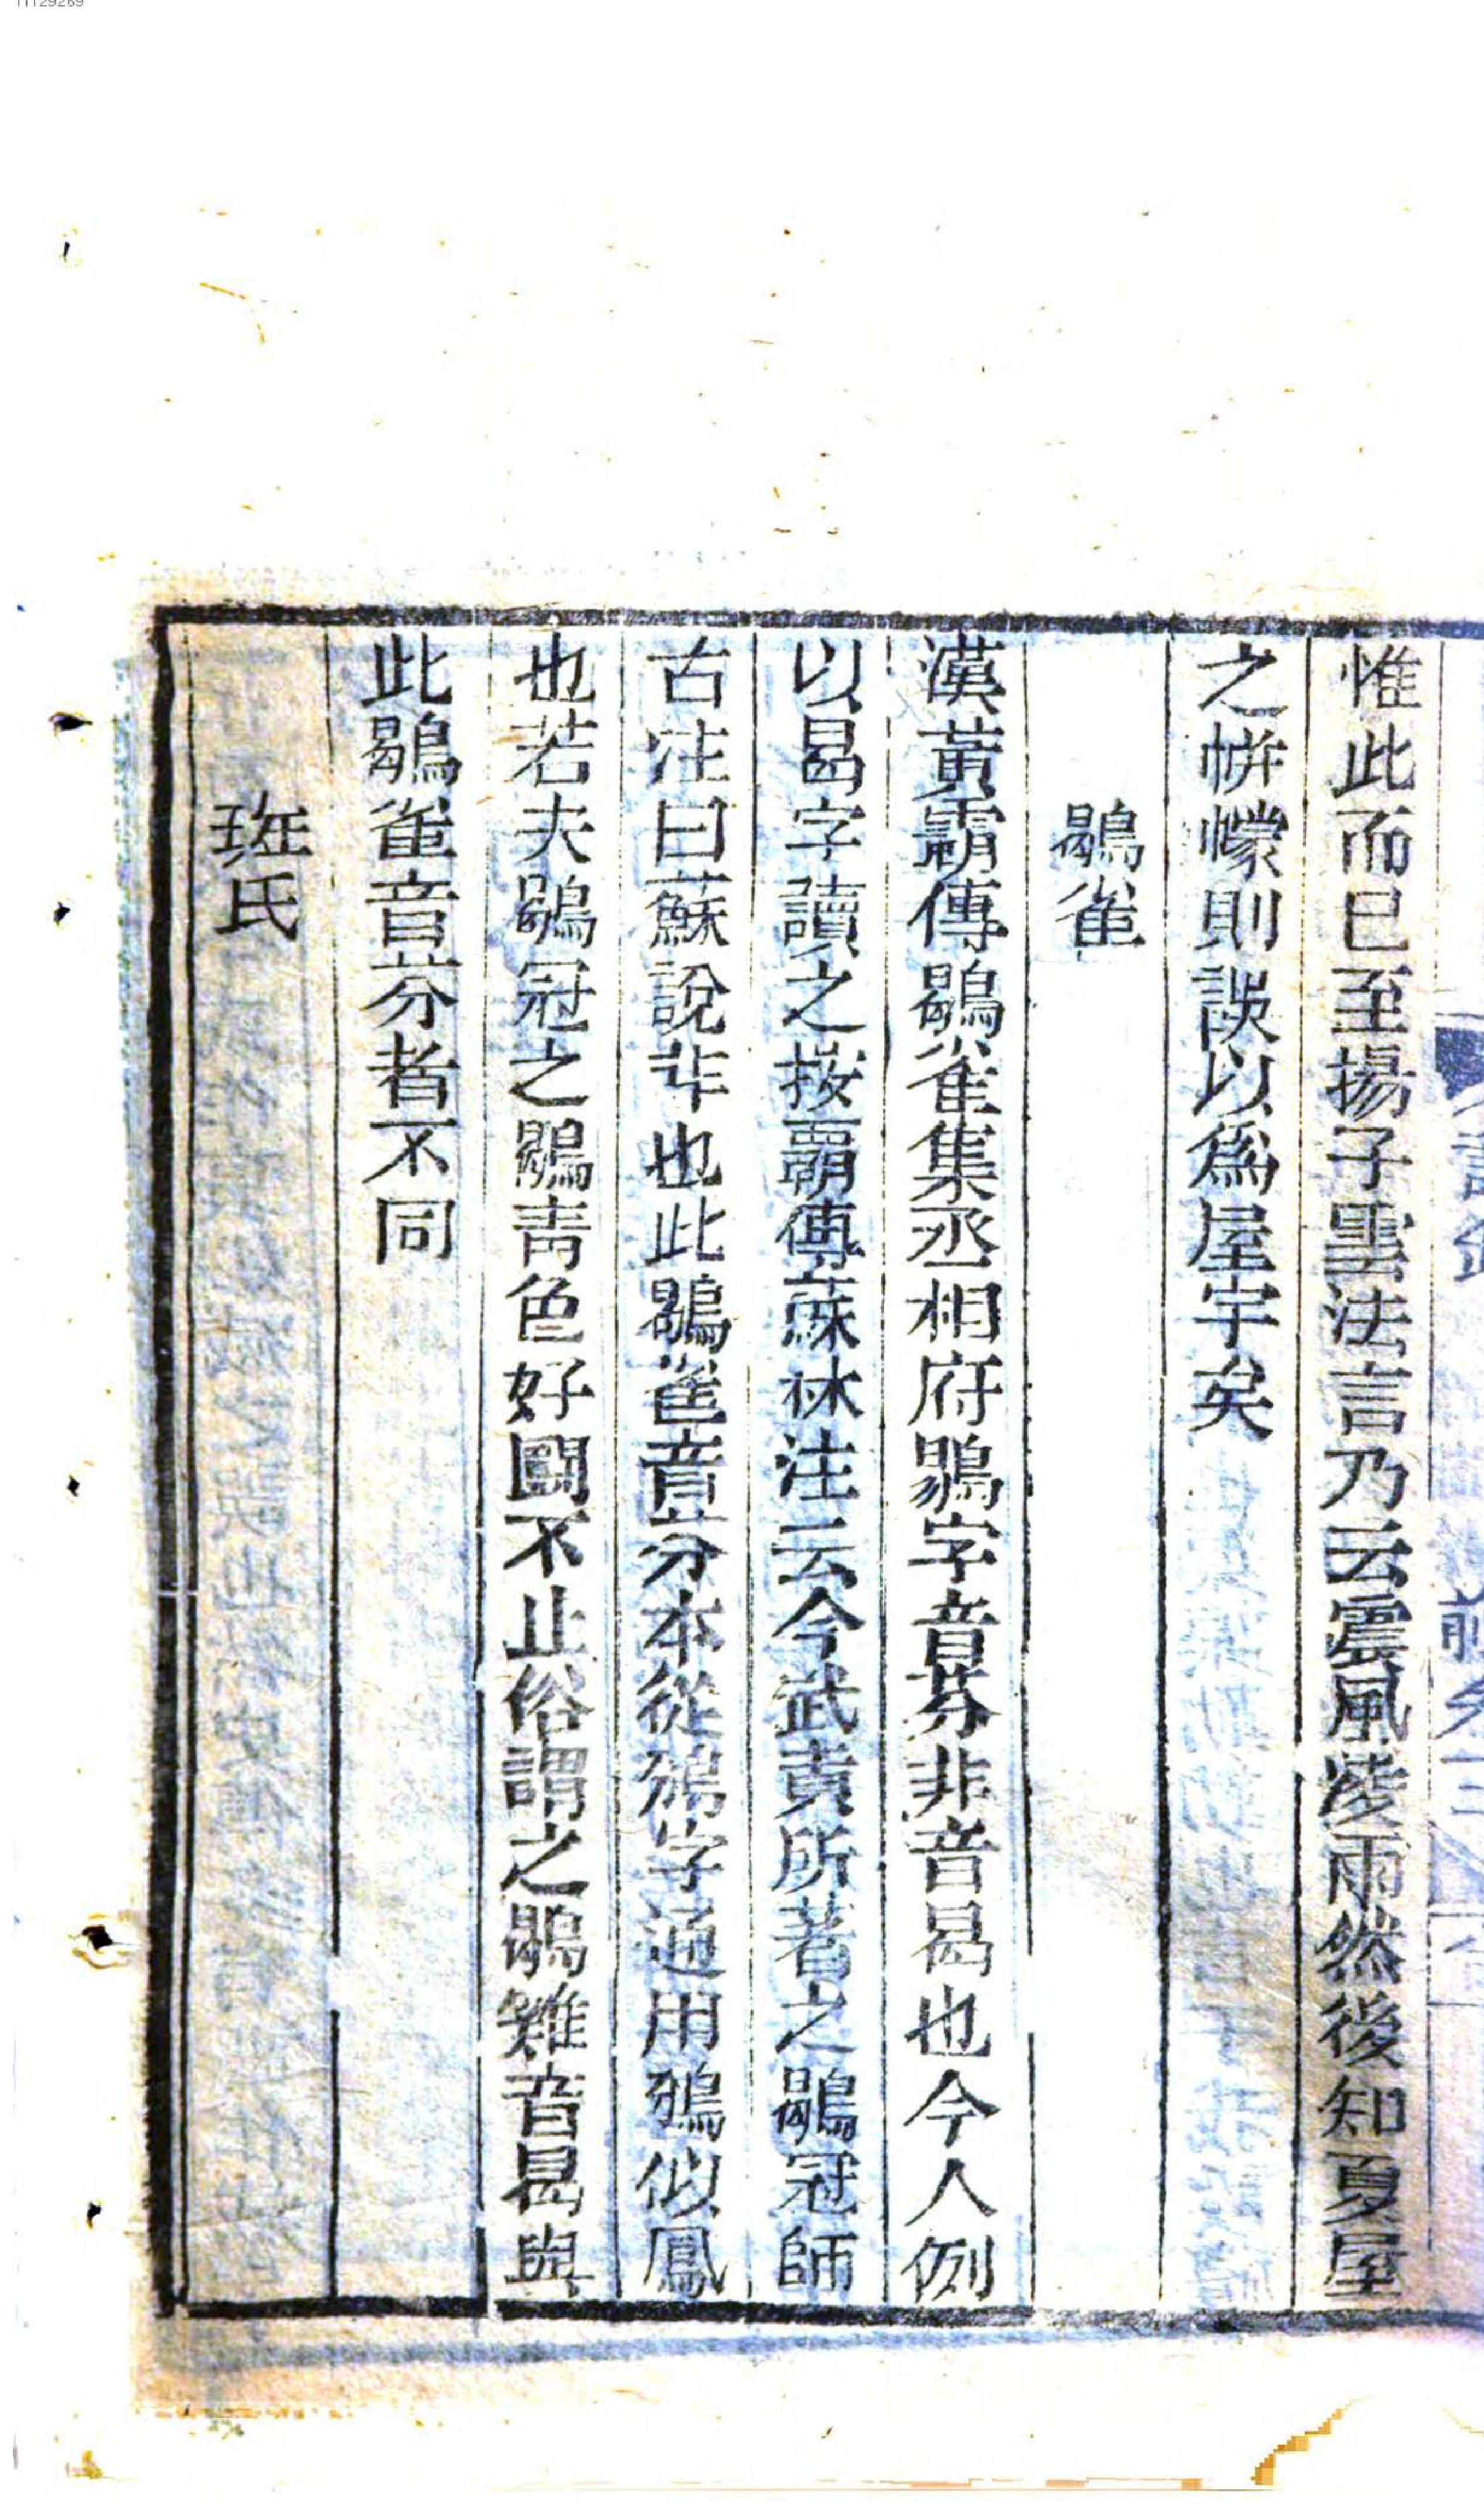 惟此而已至揚子雲法言乃云震風凌雨然後知夏屋
之帡幪則誤以為屋宇矣
鶡雀
漢黃霸傳鶡雀集丞相府鶡字音芬非音曷也今人例
以曷字讀之按霸傳蘇林注云今武賁所著之鶡冠師
古注曰蘇說非也此鶡雀音芬本從鳻字通用鳻似鳳
也若夫鶡冠之鶡青色好鬭不止俗謂之鶡雞音曷與
此鶡雀音芬者不同
班氏
11129269